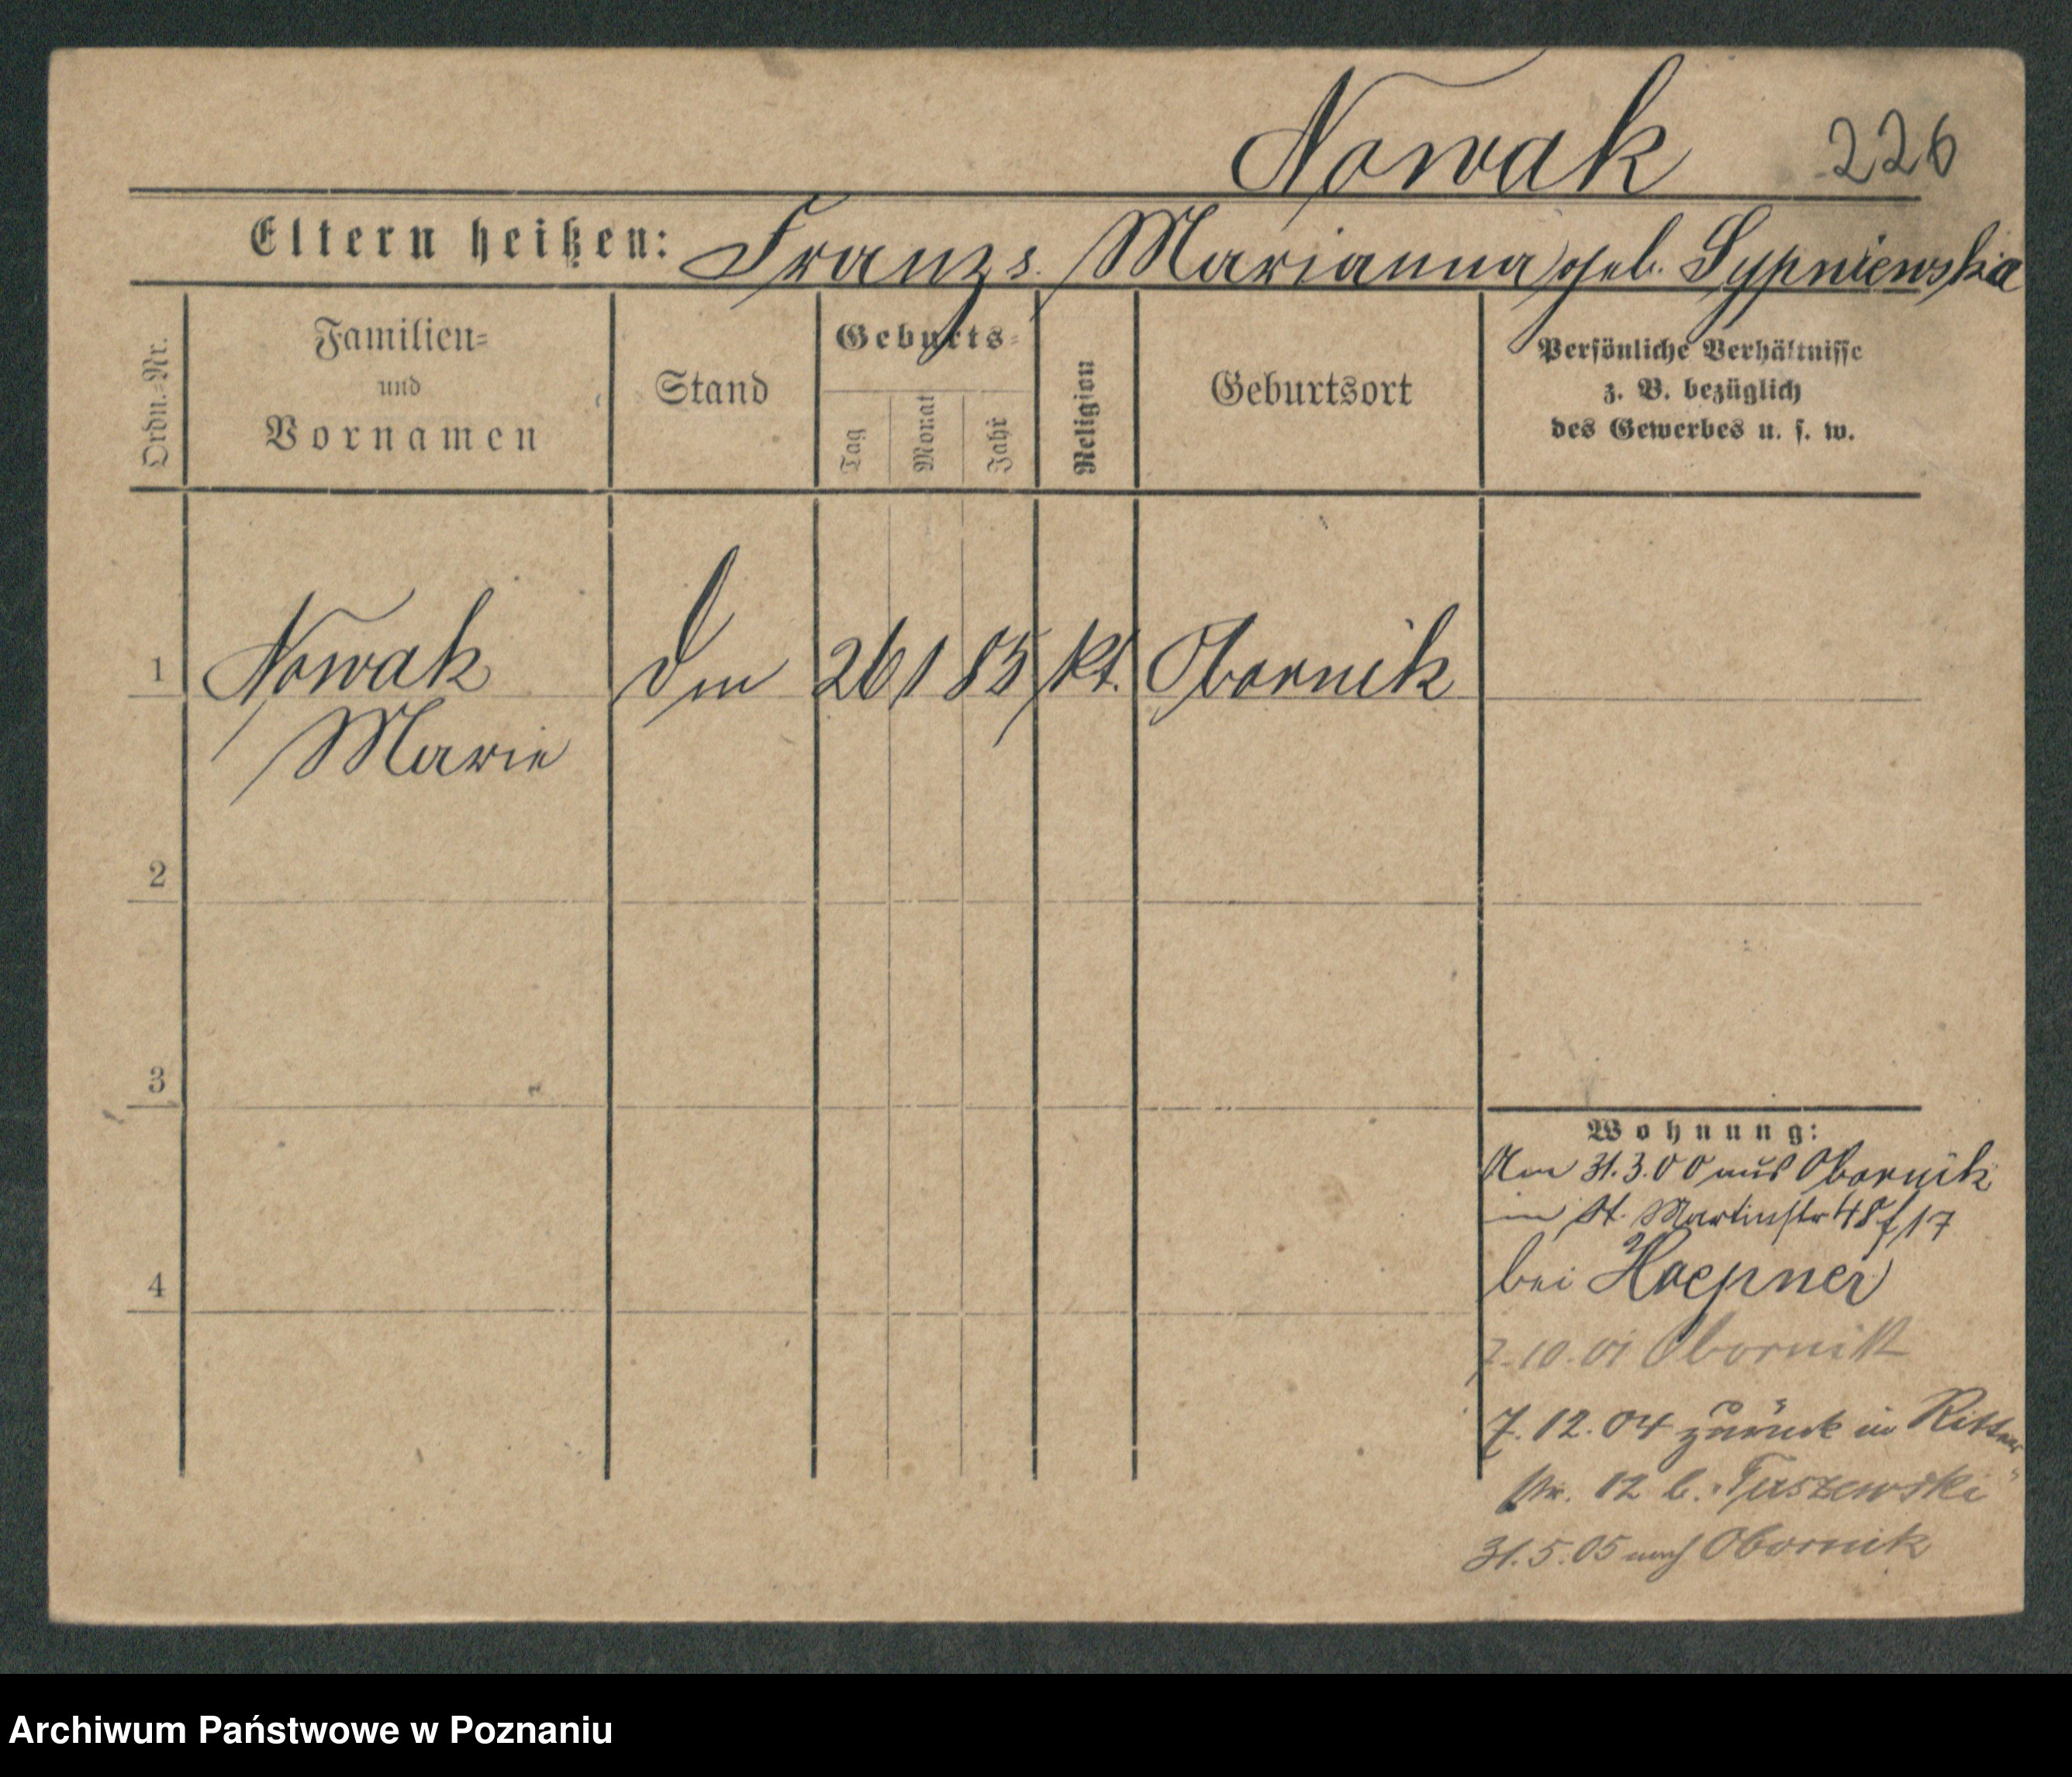 Nowak 226
Eltern heißen: Franz s. Marianna geb. Sypniewska
Ordn.=Nr.
Familien=
und
Vornamen
Stand
Geburts=
Tag
Monat
Jahr
Religion
Geburtsort
Persönliche Verhältnisse
z. B. bezüglich
des Gewerbes u. s. w.
1 Nowak 26 1 85 kt. Obornik
Marie
2
3
4
Wohnung:
Am 31.3.00 aus Obornik
in St. Martinstr 48 f, 17
bei Hoepner
7.10.01 Obornik
7.12.04 zurück in Ritter
Str. 12 b. Tuszewski
31.5.05 nach Obornik
Archiwum Państwowe w Poznaniu